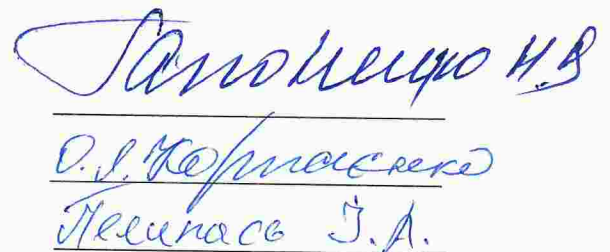 Гапоненко Н.В
О.Я. Корниенко
Пелипась І.А.